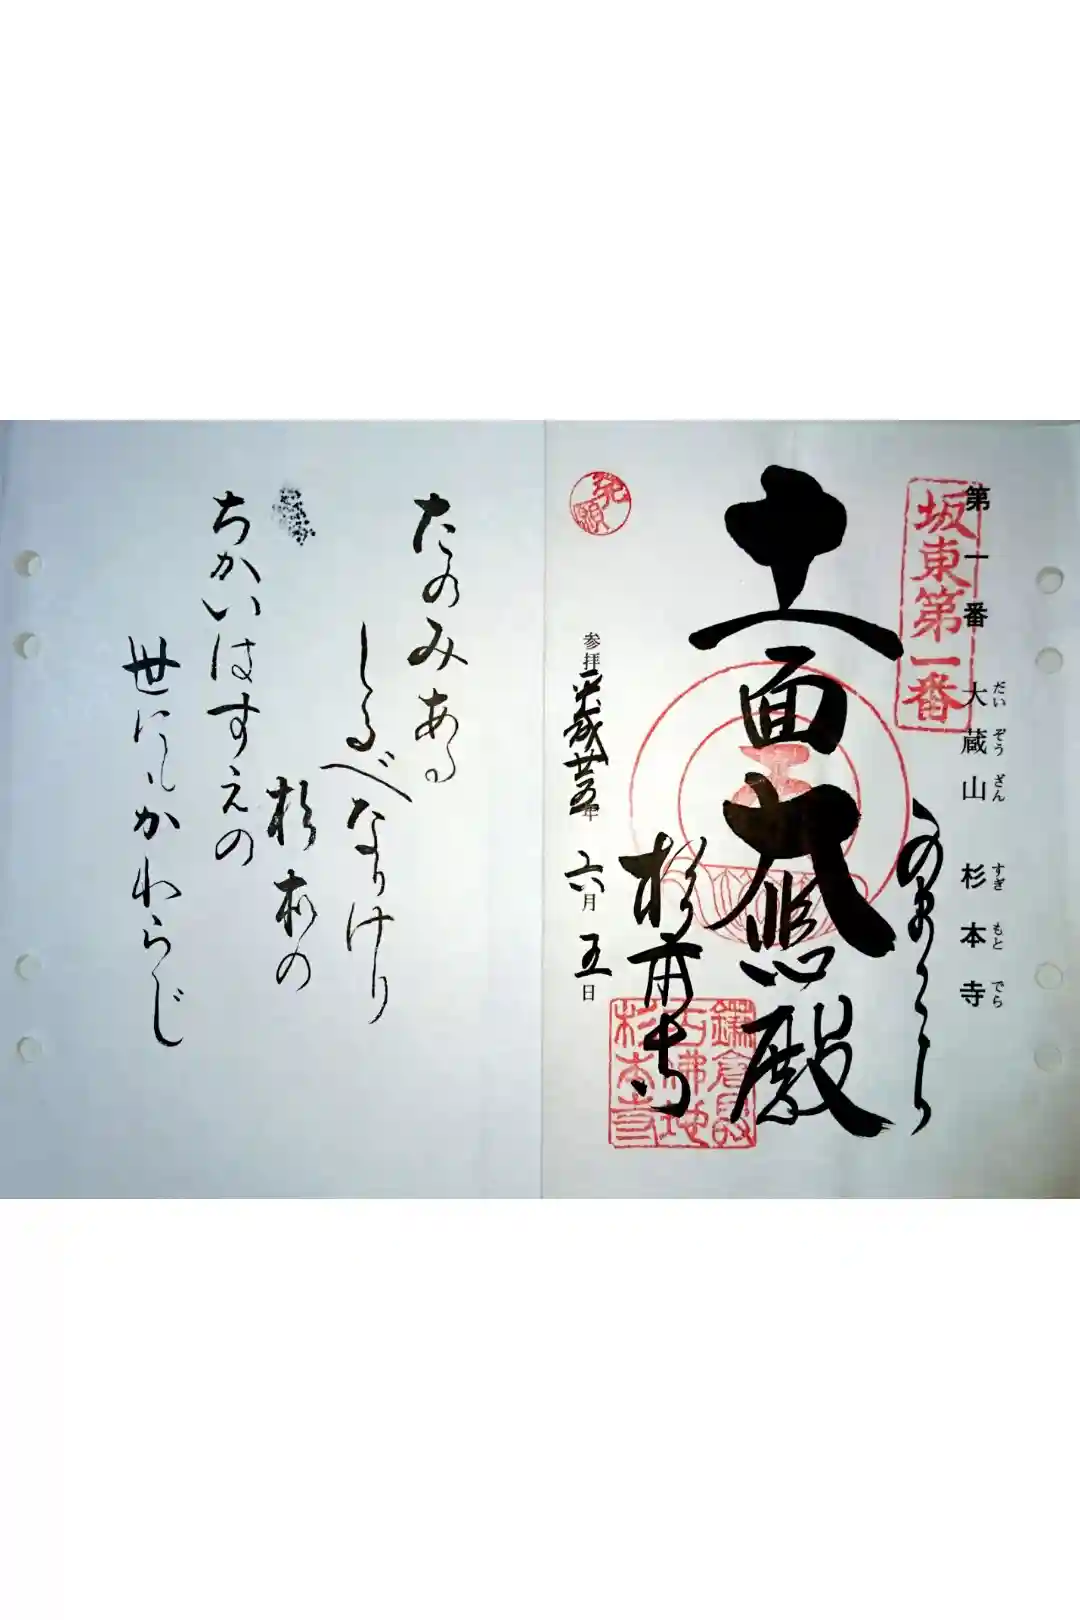 第一番 大蔵山 杉本寺
だいぞうざん すぎもとでら
坂東第一番
十一面大悲殿
杉本寺
発願
参拝平成廿五年六月五日
鎌倉最
古佛地
杉本寺
たのみある
しるべなりけり
杉本の
ちかいはすえの
世にもかわらじ